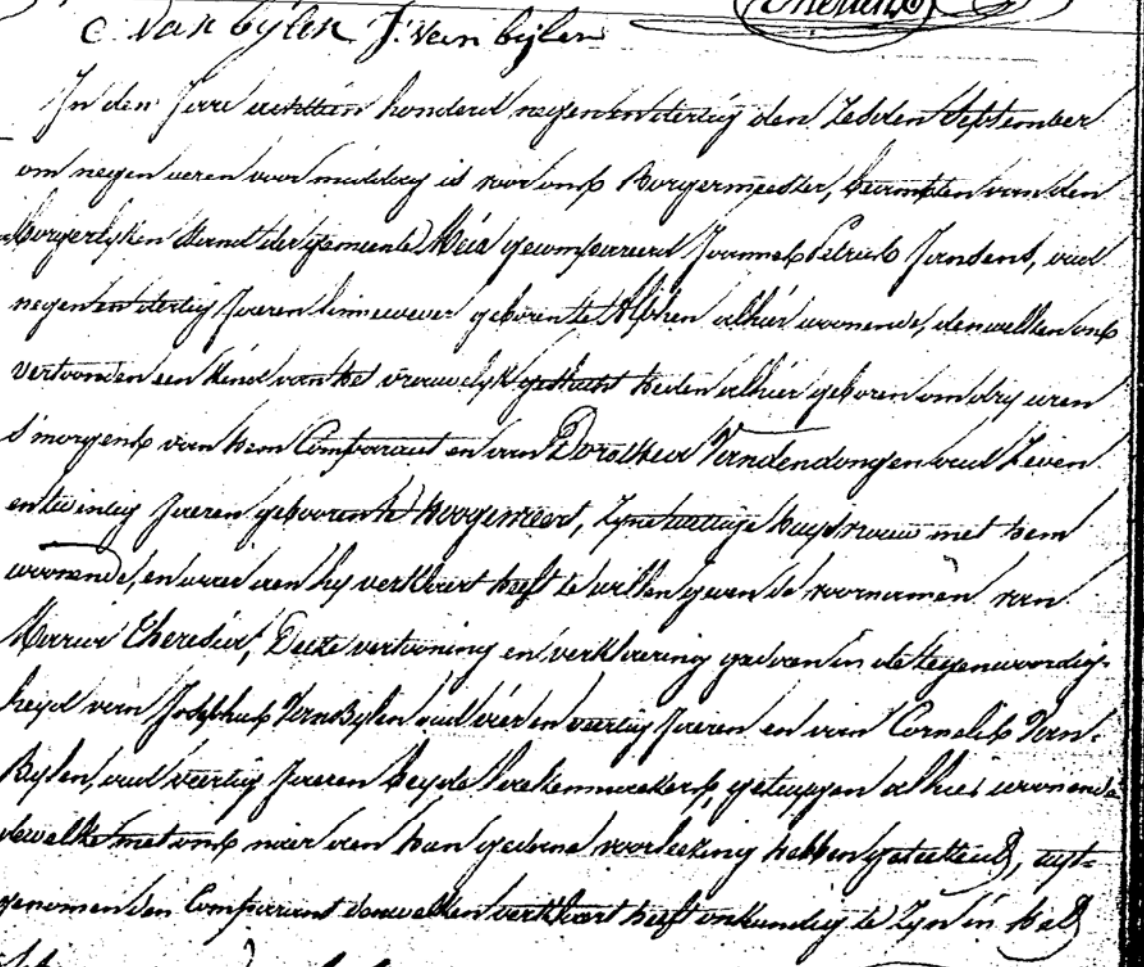 C. Van bijlen J. Van bijlen
In den Jare achttien honderd negenendertig den Zesden September
om negen ueren voor middag is voor ons Borgermeester, beampten van den
borgerlyken stand der gemeente Meir gecompareerd Joannes Petrus Jansens, oud
negenendertig Jaeren linnewever geboren te Alphen alhier woonende, denwelken ons
vertoonden een kind van het vrouwelyk geslacht heden alhier geboren om dry uren
s'morgens van hem Comparant en van Dorothea Vandendongen oud Zeven
entwintig Jaeren gebooren te hoogemeert, zyne wettige huysvrouw met hem
woonende, en waer aen hy verklaert heeft te willen geven de voornamen van
Maria Theresia, Deeze vertooning en verklaering gedaen in de tegenwoordig-
heyd van Josephus Van Bylen oud vier en veertig Jaeren en van Cornelis Van-
Bylen, oud veertig Jaeren beyde getuygen alhier woonende
dewelke met ons naer aen hun gedaene voorleezing hebben geteekend, uyt-
genomen den Comparant denwelken verklaert heeft onkundig te zyn in het